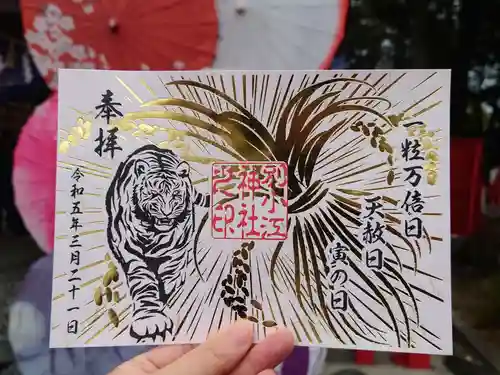 一粒万倍日
天赦日
寅の日
奉拝
別小江
神社
之印
令和五年三月二十一日